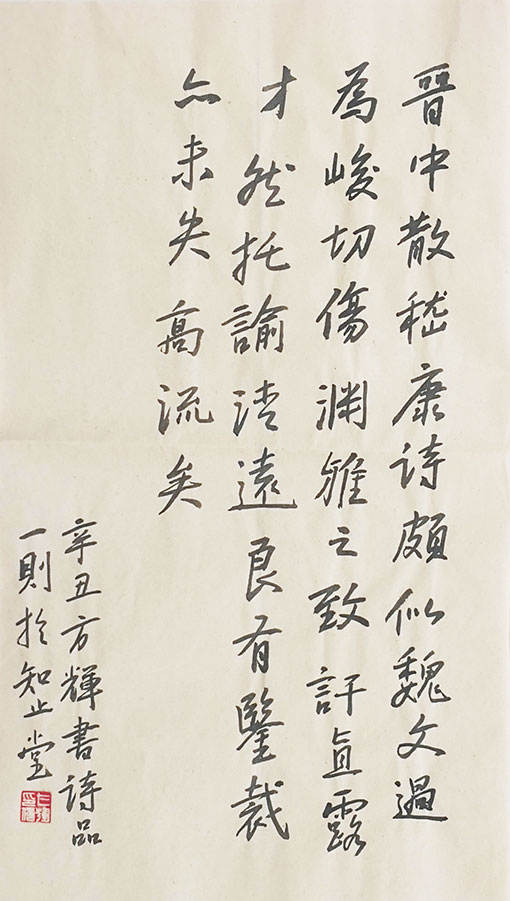 晉中散嵇康诗頗似魏文過
為峻切傷渊雅之致訐直露
才然托諭清遠良有鑒裁
亦未失高流矣
辛丑方輝書诗品
一則於知止堂